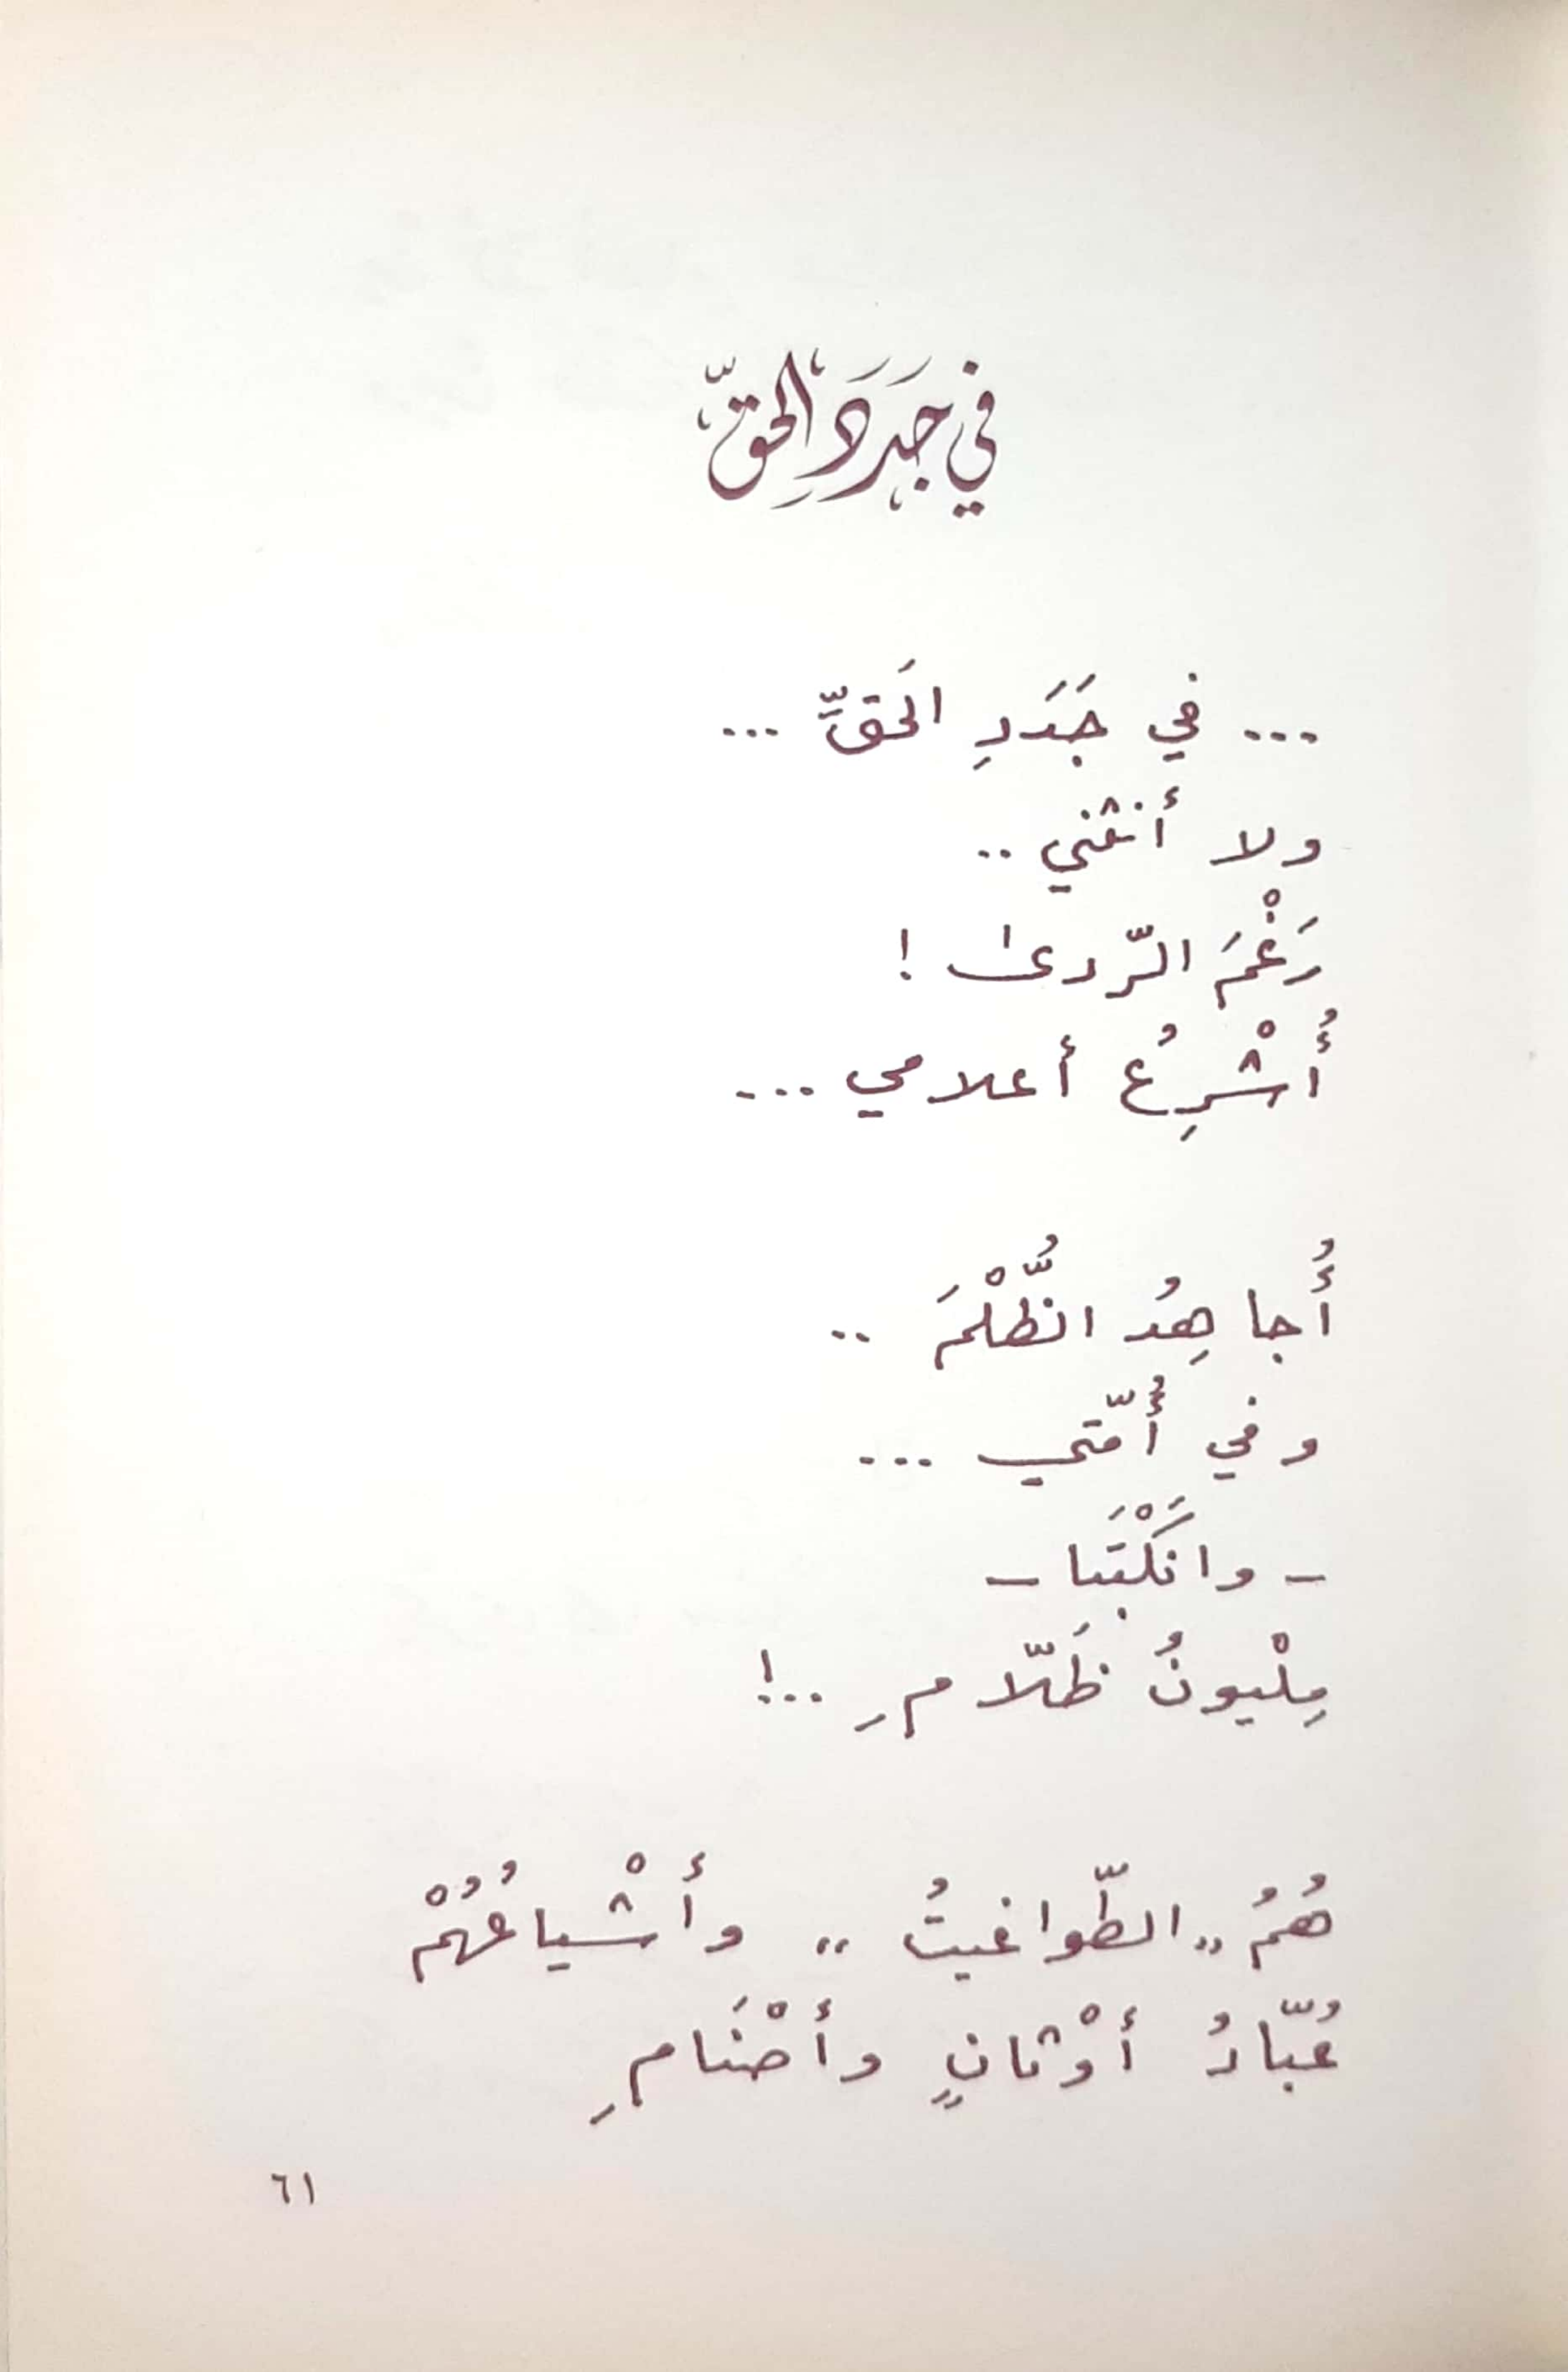 في جَدَدِ الحقّ
... في جَدَدِ الحَقِّ ...
ولا أنثني ..
رَغْمَ الرّدىٰ !
أُشْرِعُ أعلامي ...
أُجاهِدُ الظُّلْمَ ..
وفي أُمّتي ...
- وانَكْبَتَا -
مِلْيونُ ظَلّامِ ..!
هُمُ „الطّواغيتُ „ وأشْياعُهُمْ
عُبّادُ أوْثانٍ وأصْنَامِ
٦١